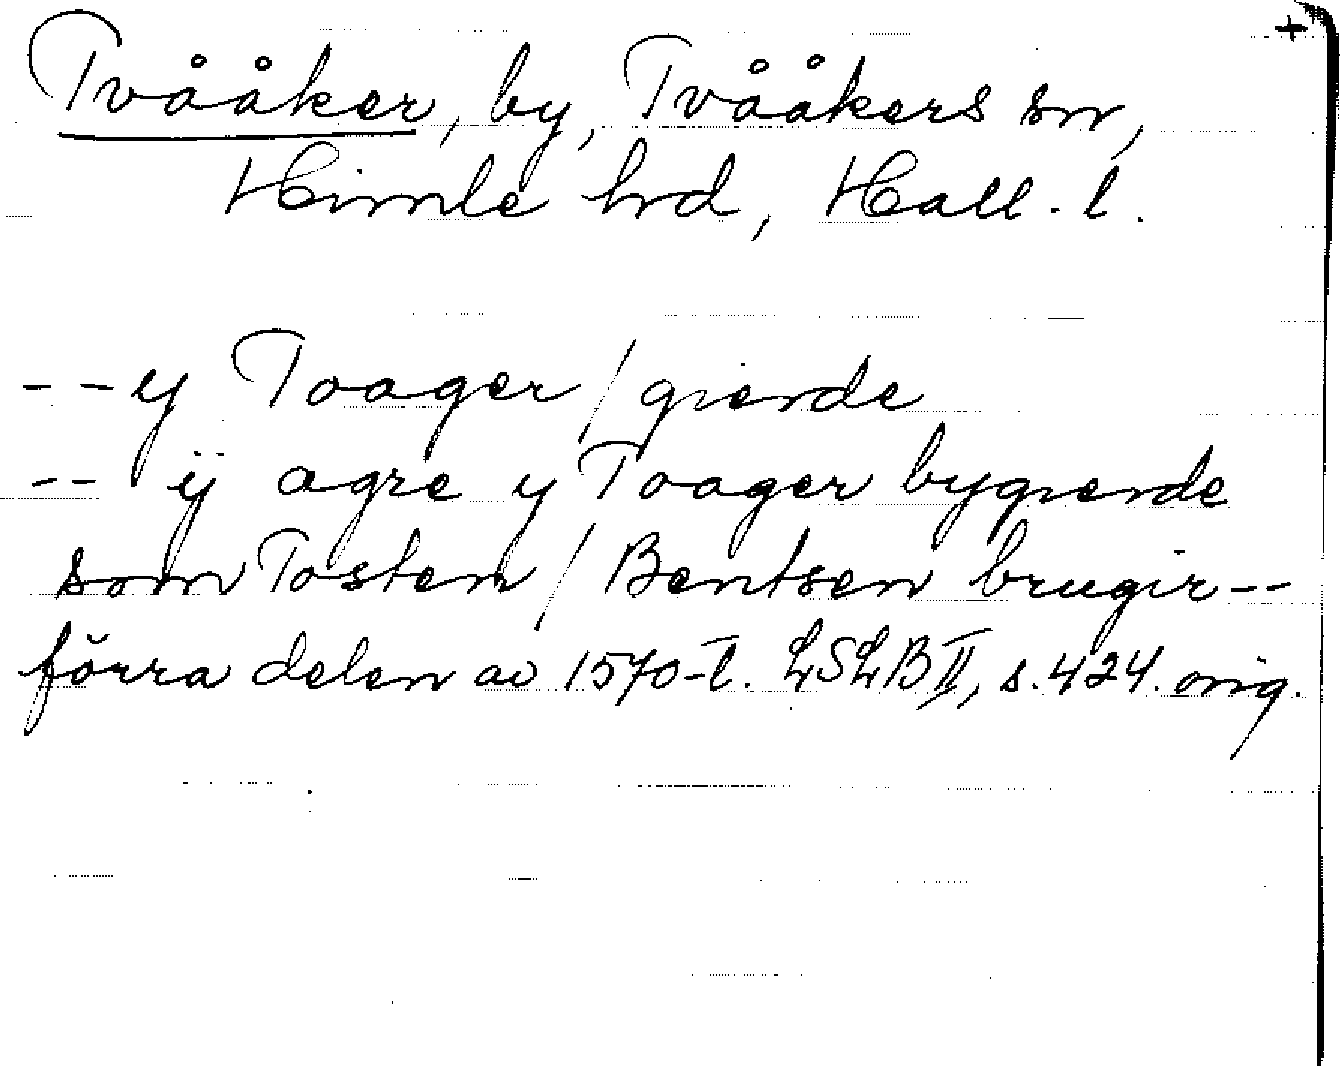 +
Tvååker, by, Tvååkers sn,
Himle hd, Hall. l.
-- y Toager / gierde
-- ÿ agre y Toager bygierde
som Tosten / Bentsen brugir --
förra delen av 1570-t. LSLB II, s. 424. orig.